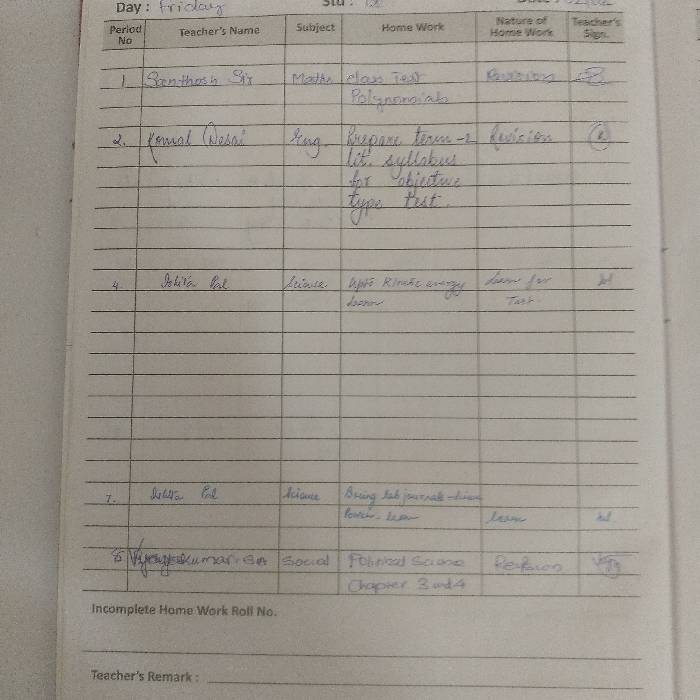 Day : Friday
Period No Teacher's Name Subject Home Work Nature of Home Work Teacher's Sign.
1 Santhosh Sir Maths class Test Revision
Polynomials
2. Komal Desai Eng. Prepare term -2 Revision
lit. syllabus
for objective
type test.
4. Ishita Pal Science upto Kinetic energy Learn for
learn Test.
7. Ishita Pal Science Bring lab journals
Power. learn learn
8 Social Political Science Revision
Chapter 3 and 4
Incomplete Home Work Roll No.
Teacher's Remark :